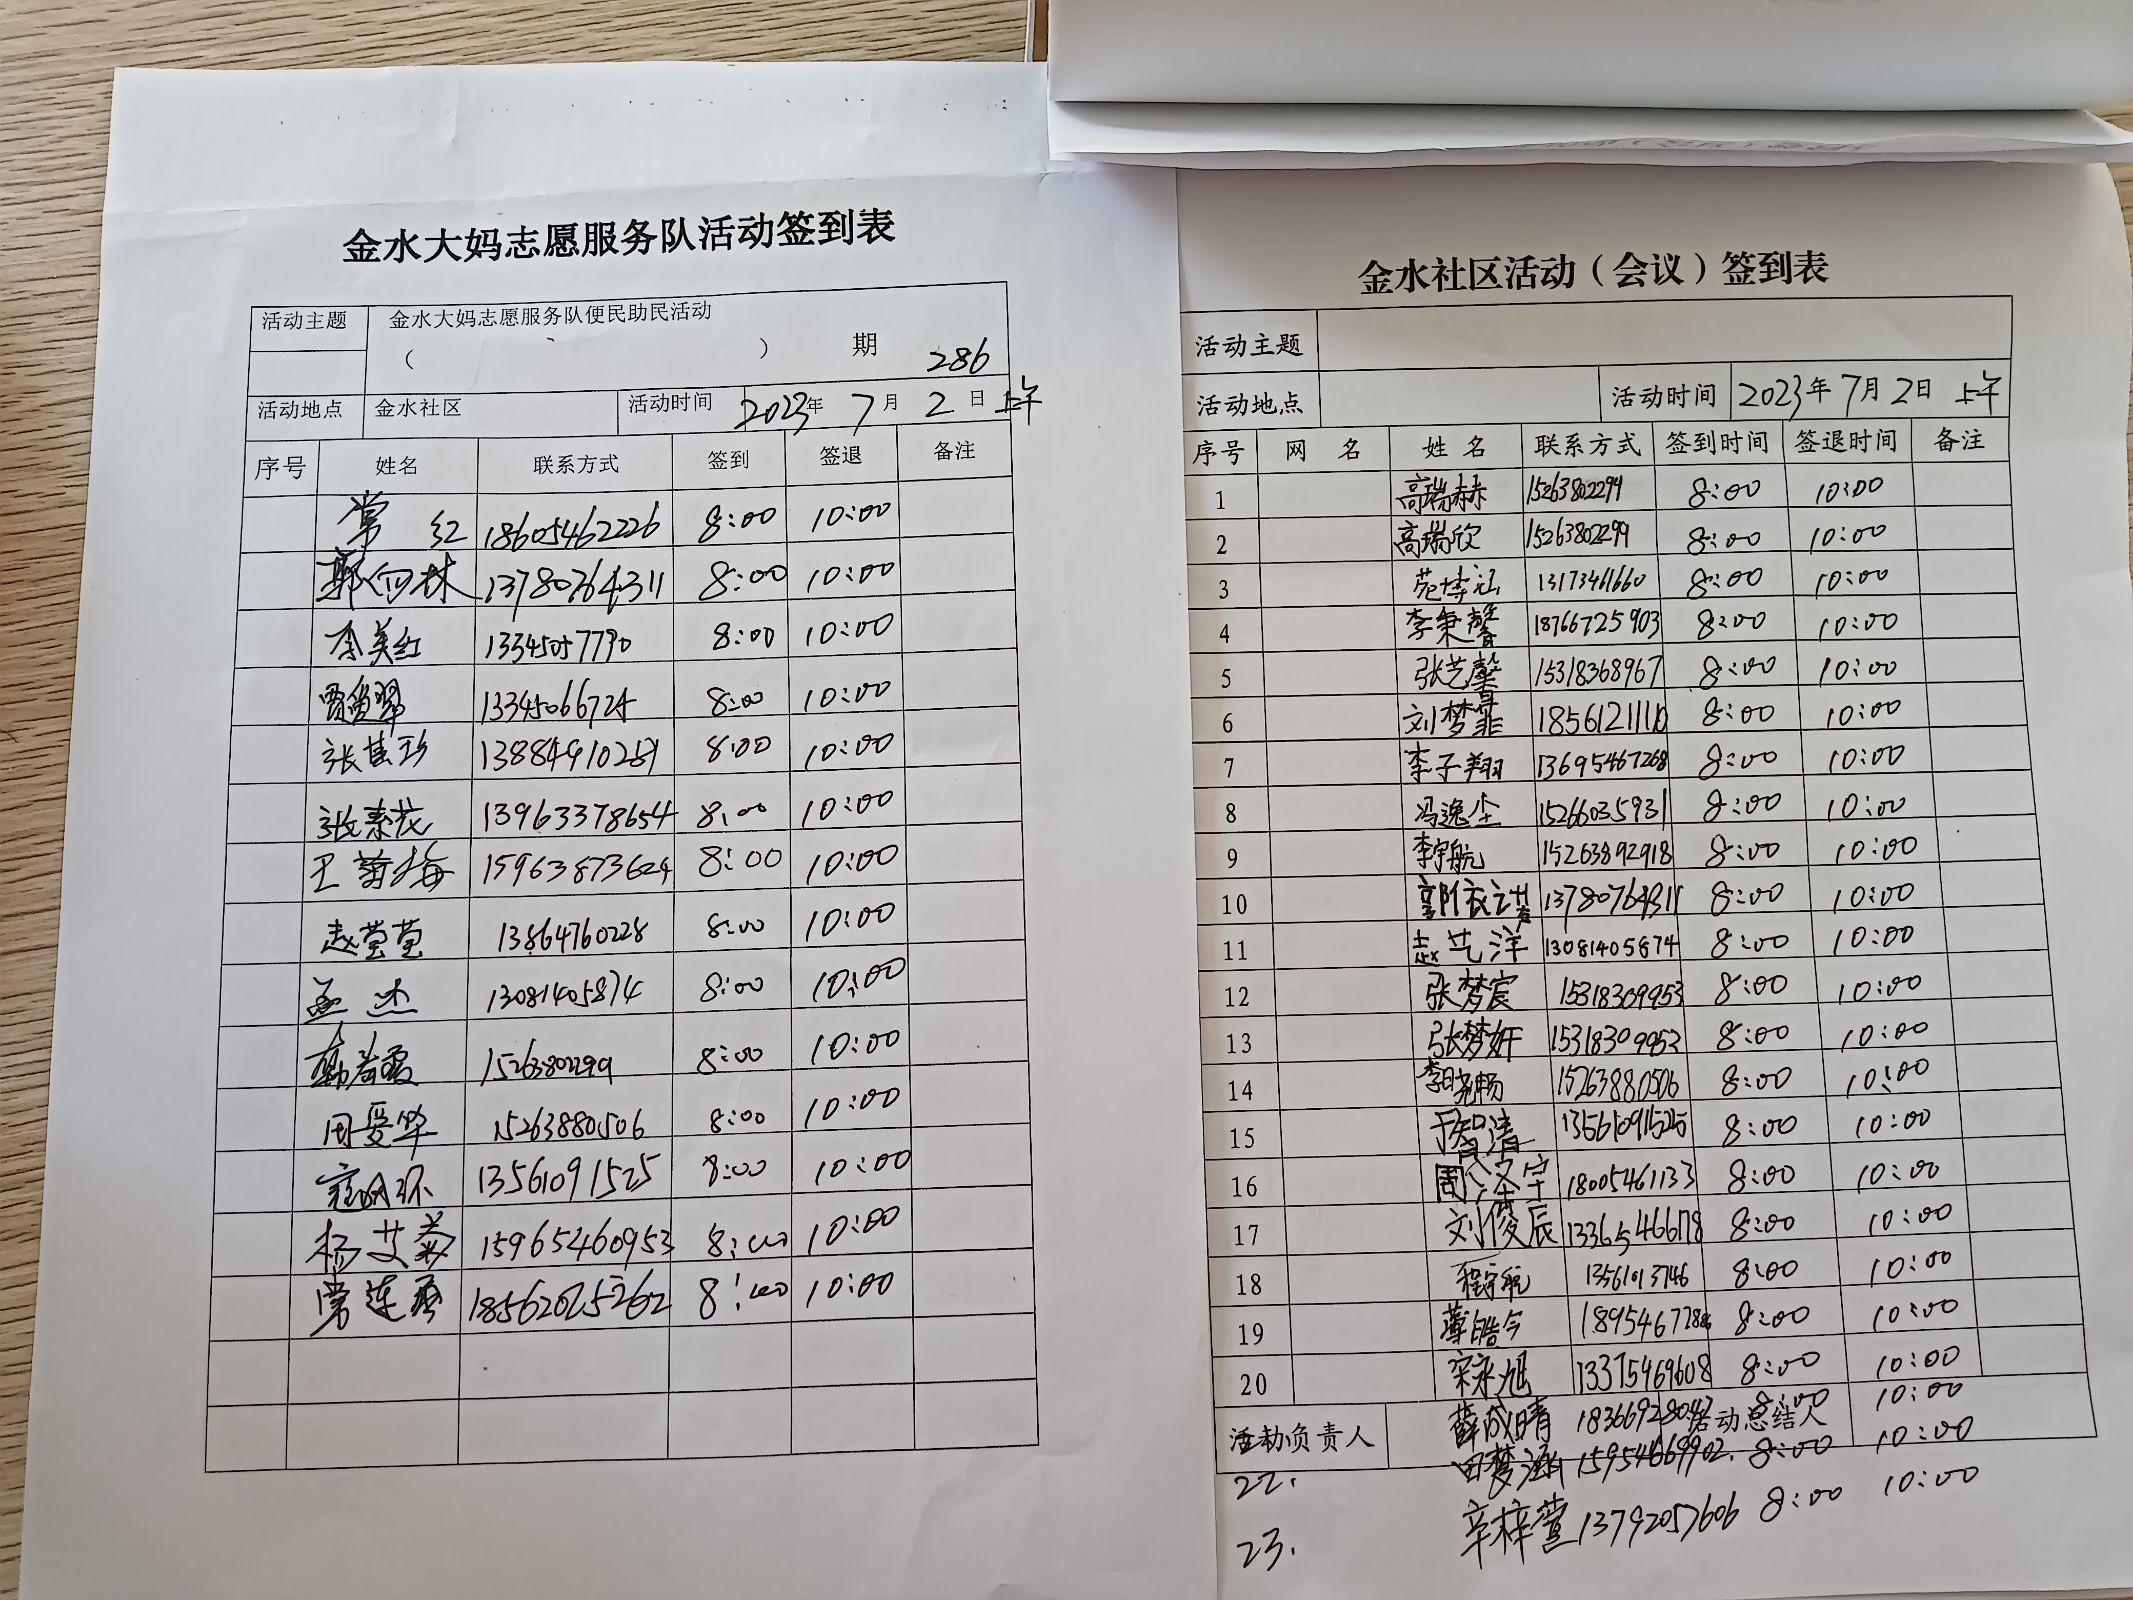 金水大妈志愿服务队活动签到表
活动主题 金水大妈志愿服务队便民助民活动
（ ） 期 286
活动地点 金水社区 活动时间 2023年 7月 2日 上午
序号 姓名 联系方式 签到 签退 备注
常红 18605462226 8:00 10:00
郭向林 13780764311 8:00 10:00
李美红 13345057790 8:00 10:00
13345066724 8:00 10:00
张其珍 8:00 10:00
张素花 13963378654 8:00 10:00
王菊梅 15963873624 8:00 10:00
赵莹莹 13864760228 8:00 10:00
孟杰 13081405874 8:00 10:00
15263802299 8:00 10:00
周爱华 15263880506 8:00 10:00
13561091525 8:00 10:00
杨艾菊 15965460953 8:00 10:00
常连香 18562025262 8:00 10:00
金水社区活动（会议）签到表
活动主题
活动地点 活动时间 2023年7月2日 上午
序号 网 名 姓 名 联系方式 签到时间 签退时间 备注
1 高瑞赫 15263802299 8:00 10:00
2 高瑞欣 15263802299 8:00 10:00
3 范博涵 13173461660 8:00 10:00
4 李秉馨 18766725903 8:00 10:00
5 张艺馨 15318368967 8:00 10:00
6 刘梦霏 18561211110 8:00 10:00
7 李子翔 13695467268 8:00 10:00
8 冯逸尘 15266035931 8:00 10:00
9 李宇航 15263892918 8:00 10:00
10 13780764311 8:00 10:00
11 赵艺洋 13081405874 8:00 10:00
12 张梦宸 15318309953 8:00 10:00
13 张梦妍 15318309953 8:00 10:00
14 李晓畅 15263880506 8:00 10:00
15 于智清 13561091525 8:00 10:00
16 18005461133 8:00 10:00
17 刘俊辰 13365466178 8:00 10:00
18 程宇航 13561013746 8:00 10:00
19 薄皓今 8:00 10:00
20 宋永旭 13375469608 8:00 10:00
活动负责人 薛成晴 18366928042 活动总结人 8:00 10:00
22. 田梦涵 15954669902. 8:00 10:00
23. 辛梓萱 13792057606 8:00 10:00